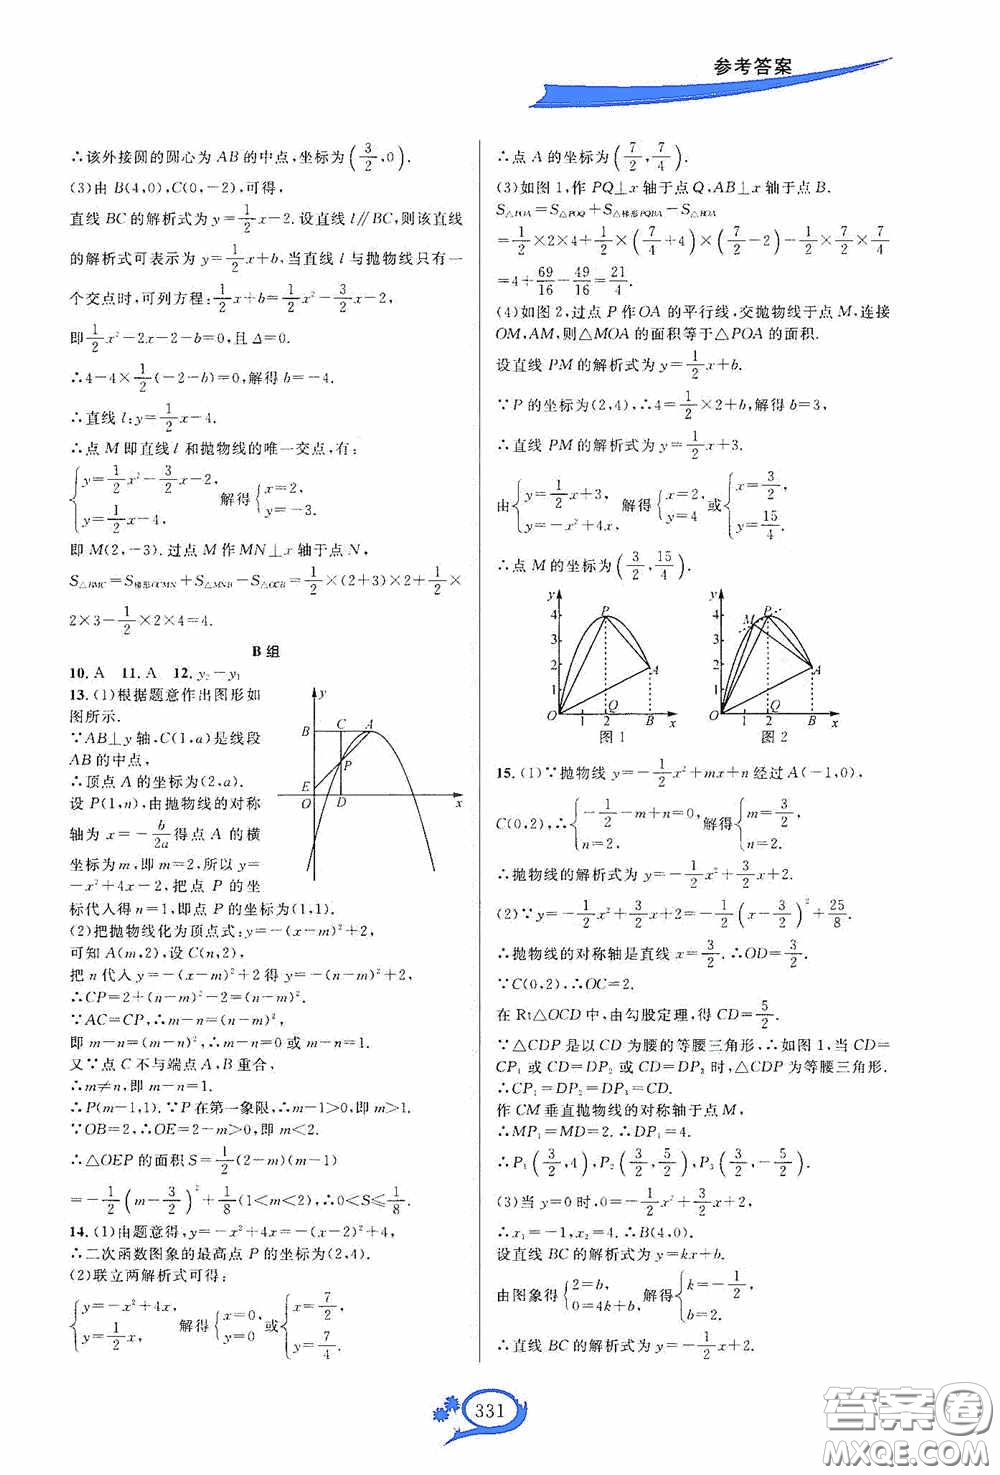 参考答案
∴该外接圆的圆心为 AB 的中点,坐标为(3/2,0).
(3)由 B(4,0),C(0,-2),可得,
直线 BC 的解析式为 y=1/2x-2.设直线 l∥BC,则该直线
的解析式可表示为 y=1/2x+b,当直线 l 与抛物线只有一
个交点时,可列方程:1/2x+b=1/2x²-3/2x-2,
即1/2x²-2x-2-b=0,且 Δ=0.
∴4-4×1/2(-2-b)=0,解得 b=-4.
∴直线 l:y=1/2x-4.
∴点 M 即直线 l 和抛物线的唯一交点,有:
{y=1/2x²-3/2x-2, y=1/2x-4, 解得{x=2, y=-3.
即 M(2,-3).过点 M 作 MN⊥x 轴于点 N,
S△BMC=S梯形OCMN+S△MNB-S△OCB=1/2×(2+3)×2+1/2×
2×3-1/2×2×4=4.
B 组
10. A 11. A 12. y₂-y₁
13. (1)根据题意作出图形如
图所示.
∵AB⊥y 轴,C(1,a)是线段
AB 的中点,
∴顶点 A 的坐标为(2,a).
设 P(1,n),由抛物线的对称
轴为 x=-b/2a得点 A 的横
坐标为 m,即 m=2,所以 y=
-x²+4x-2,把点 P 的坐
标代入得 n=1,即点 P 的坐标为(1,1).
y B C A P E O D x
(2)把抛物线化为顶点式:y=-(x-m)²+2,
可知 A(m,2),设 C(n,2),
把 n 代入 y=-(x-m)²+2 得 y=-(n-m)²+2,
∴CP=2+(n-m)²-2=(n-m)²,
∵AC=CP,∴m-n=(n-m)²,
即 m-n=(m-n)²,∴m-n=0 或 m-n=1.
又∵点 C 不与端点 A,B 重合,
∴m≠n,即 m-n=1.
∴P(m-1,1).∵P 在第一象限,∴m-1>0,即 m>1.
∵OB=2,∴OE=2-m>0,即 m<2.
∴△OEP 的面积 S=1/2(2-m)(m-1)
=-1/2(m-3/2)²+1/8(1<m<2),∴0<S≤1/8.
14. (1)由题意得,y=-x²+4x=-(x-2)²+4,
∴二次函数图象的最高点 P 的坐标为(2,4).
(2)联立两解析式可得:
{y=-x²+4x, y=1/2x, 解得{x=0, y=0 或{x=7/2, y=7/4.
∴点 A 的坐标为(7/2,7/4).
(3)如图 1,作 PQ⊥x 轴于点 Q,AB⊥x 轴于点 B.
S△POA=S△POQ+S△梯形PQBA-S△BOA
=1/2×2×4+1/2×(7/4+4)×(7/2-2)-1/2×7/2×7/4
=4+69/16-49/16=21/4.
(4)如图 2,过点 P 作 OA 的平行线,交抛物线于点 M,连接
OM,AM,则△MOA 的面积等于△POA 的面积.
设直线 PM 的解析式为 y=1/2x+b.
∵P 的坐标为(2,4),∴4=1/2×2+b,解得 b=3,
∴直线 PM 的解析式为 y=1/2x+3.
由{y=1/2x+3, y=-x²+4x, 解得{x=2, y=4 或{x=3/2, y=15/4.
∴点 M 的坐标为(3/2,15/4).
y 4 3 2 1 P A O 1 2 Q B x
图 1
y 4 3 2 1 M P A O 1 2 Q B x
图 2
15. (1)∵抛物线 y=-1/2x²+mx+n 经过 A(-1,0),
C(0,2),∴{-1/2-m+n=0, n=2. 解得{m=3/2, n=2.
∴抛物线的解析式为 y=-1/2x²+3/2x+2.
(2)∵y=-1/2x²+3/2x+2=-1/2(x-3/2)²+25/8,
∴抛物线的对称轴是直线 x=3/2.∴OD=3/2.
∵C(0,2),∴OC=2.
在 Rt△OCD 中,由勾股定理,得 CD=5/2.
∵△CDP 是以 CD 为腰的等腰三角形,∴如图 1,当 CD=
CP₁ 或 CD=DP₂ 或 CD=DP₃ 时,△CDP 为等腰三角形.
∴CP₁=DP₂=DP₃=CD.
作 CM 垂直抛物线的对称轴于点 M,
∴MP₁=MD=2.∴DP₁=4.
∴P₁(3/2,4),P₂(3/2,5/2),P₃(3/2,-5/2).
(3)当 y=0 时,0=-1/2x²+3/2x+2,
∴x₁=-1,x₂=4.∴B(4,0).
设直线 BC 的解析式为 y=kx+b.
由图象得{2=b, 0=4k+b, 解得{k=-1/2, b=2.
∴直线 BC 的解析式为 y=-1/2x+2.
331
答案圈
MXQE.COM